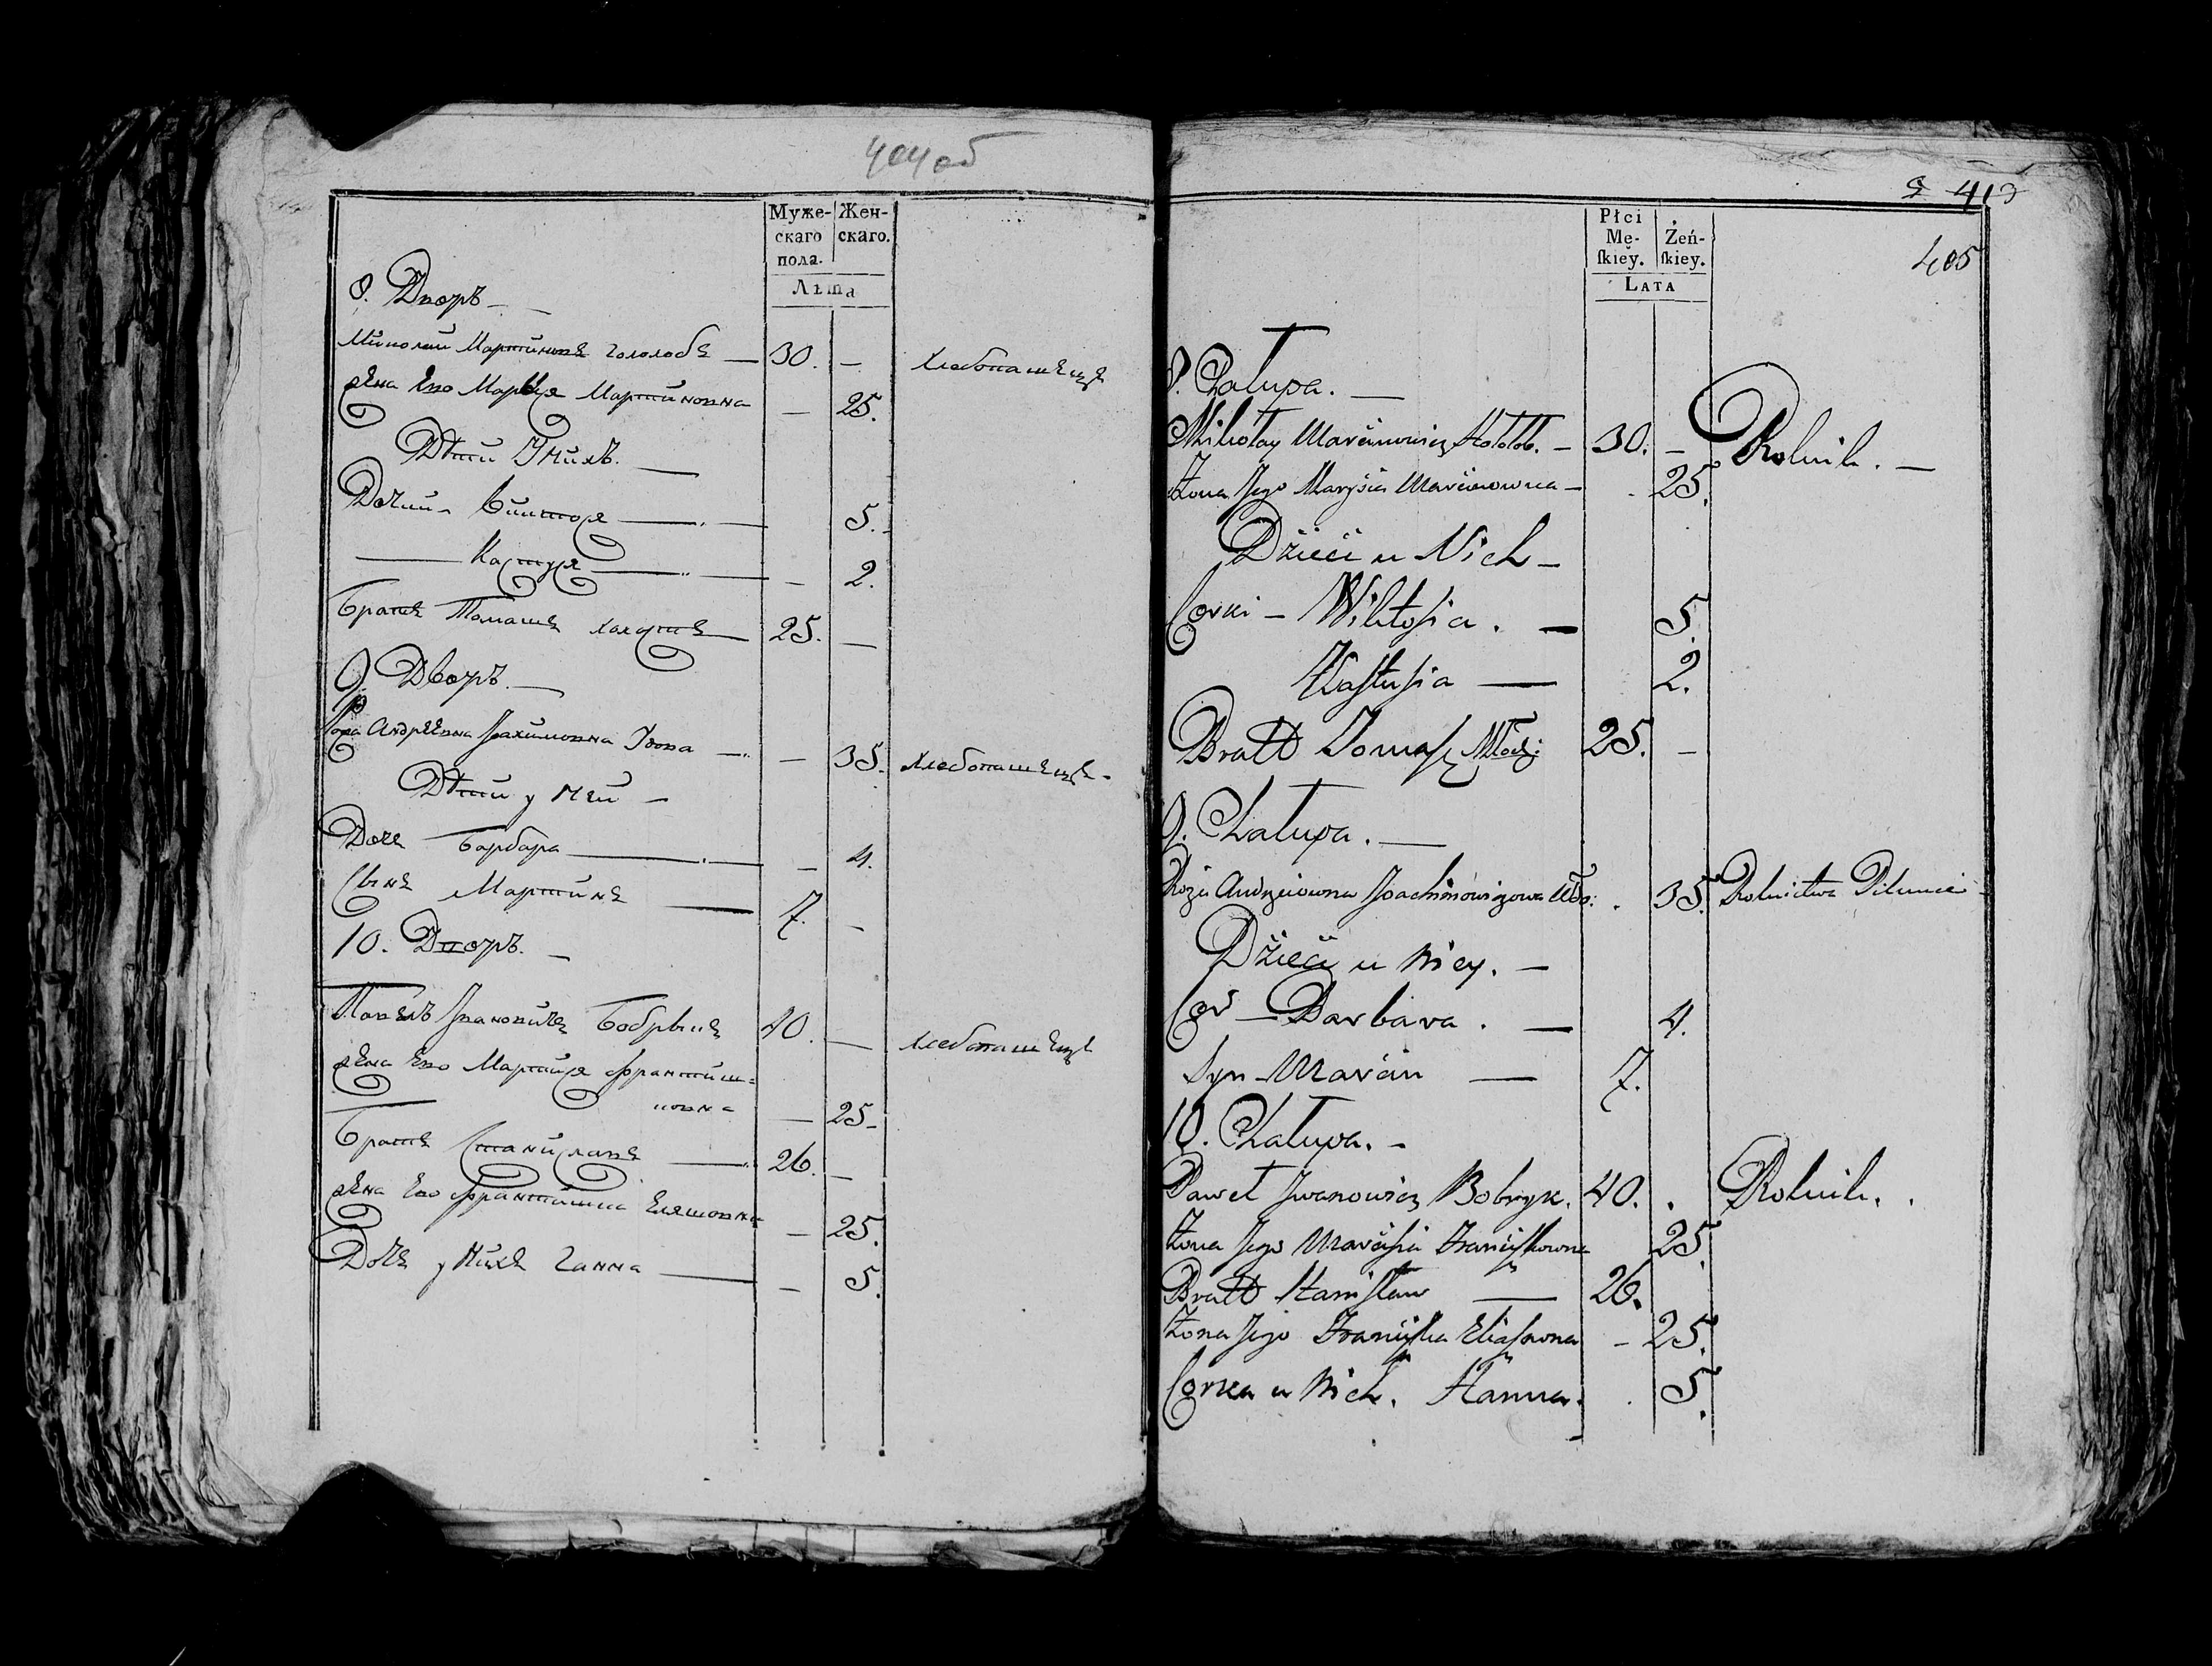 404об
Муже-
скаго
пола.
Жен-
скаго.
Лѣта
8. Дворъ —
Миколай Мартиновъ Гололобъ — 30. — Хлебопашецъ
жена Его Марыся Мартиновна — 25.
Дѣти У нихъ. —
Дочки - Виктося — 5.
— Кастуся — — 2.
братъ Томашъ холостъ 25. —
9. Дворъ. —
Роза Андреевна Іахимовна Удова — — 35. Хлебопашецъ -
Дѣти у ней —
Дочь Барбара — — 4.
Сынъ Мартинъ — 7. —
10. Дворъ. —
Павелъ Ивановичъ Бобрыкъ 40. — Хлебопашецъ
жена Его Марцися Франтиш=
ковна — 25 -
братъ Станиславъ — 26. —
жена Его Франтишка Еляшовна — 25.
Дочь у нихъ Ганна — — 5.
413
405
Płci
Mę-
ſkiey.
Żeń-
ſkiey.
LATA
8. Chałupa. —
Mikołay Marcinowicz Hołołob. — 30. — Rolnik. —
Żona Jego Marysia Marcinowna — . 25.
Dzieci u Nich —
Corki — Wiktosia. — 5.
Kastusia — 2.
Bratt Tomasz Młodz: 25. —
9. Chałupa. —
Roza Andrzeiowna Joachimowiczowa Wdo: . 35. Rolnictwa Pilnuie -
Dzieci u Niey. —
Cor — Barbara. — 4.
Syn — Marcin — 7.
10. Chałupa. —
Paweł Jwanowicz Bobryk. 40. . Rolnik. .
Żona Jego Marcisia Franciszkowna 25.
Bratt Stanisław — 26.
Żona Jego Franciszka Eliaszowna — 25.
Corka u Nich. Hanna. . 5.